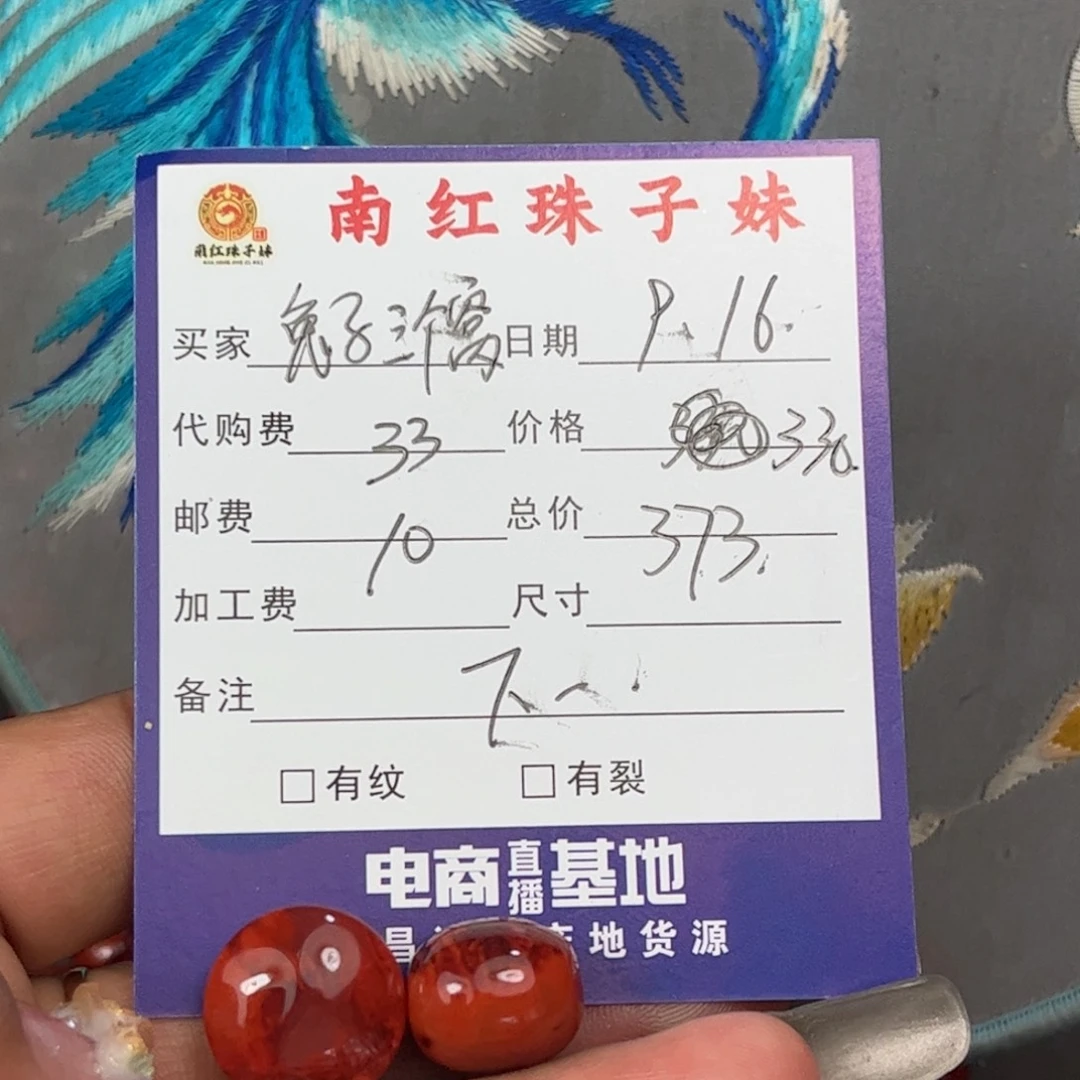 南红珠子妹
南红珠子妹
买家 兔子三个窝 日期 9.16.
代购费 33 价格 330.
邮费 10 总价 373.
加工费 尺寸
备注
□有纹 □有裂
电商直播基地
昌 地货源